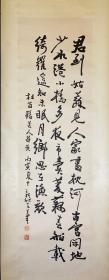 君到姑蘇見人家盡枕河古宮閒地
少水港小橋多夜市賣菱藕春船載
綺羅遙知未眠月鄉思在漁歌
杜荀鶴送人遊吳丙寅夏